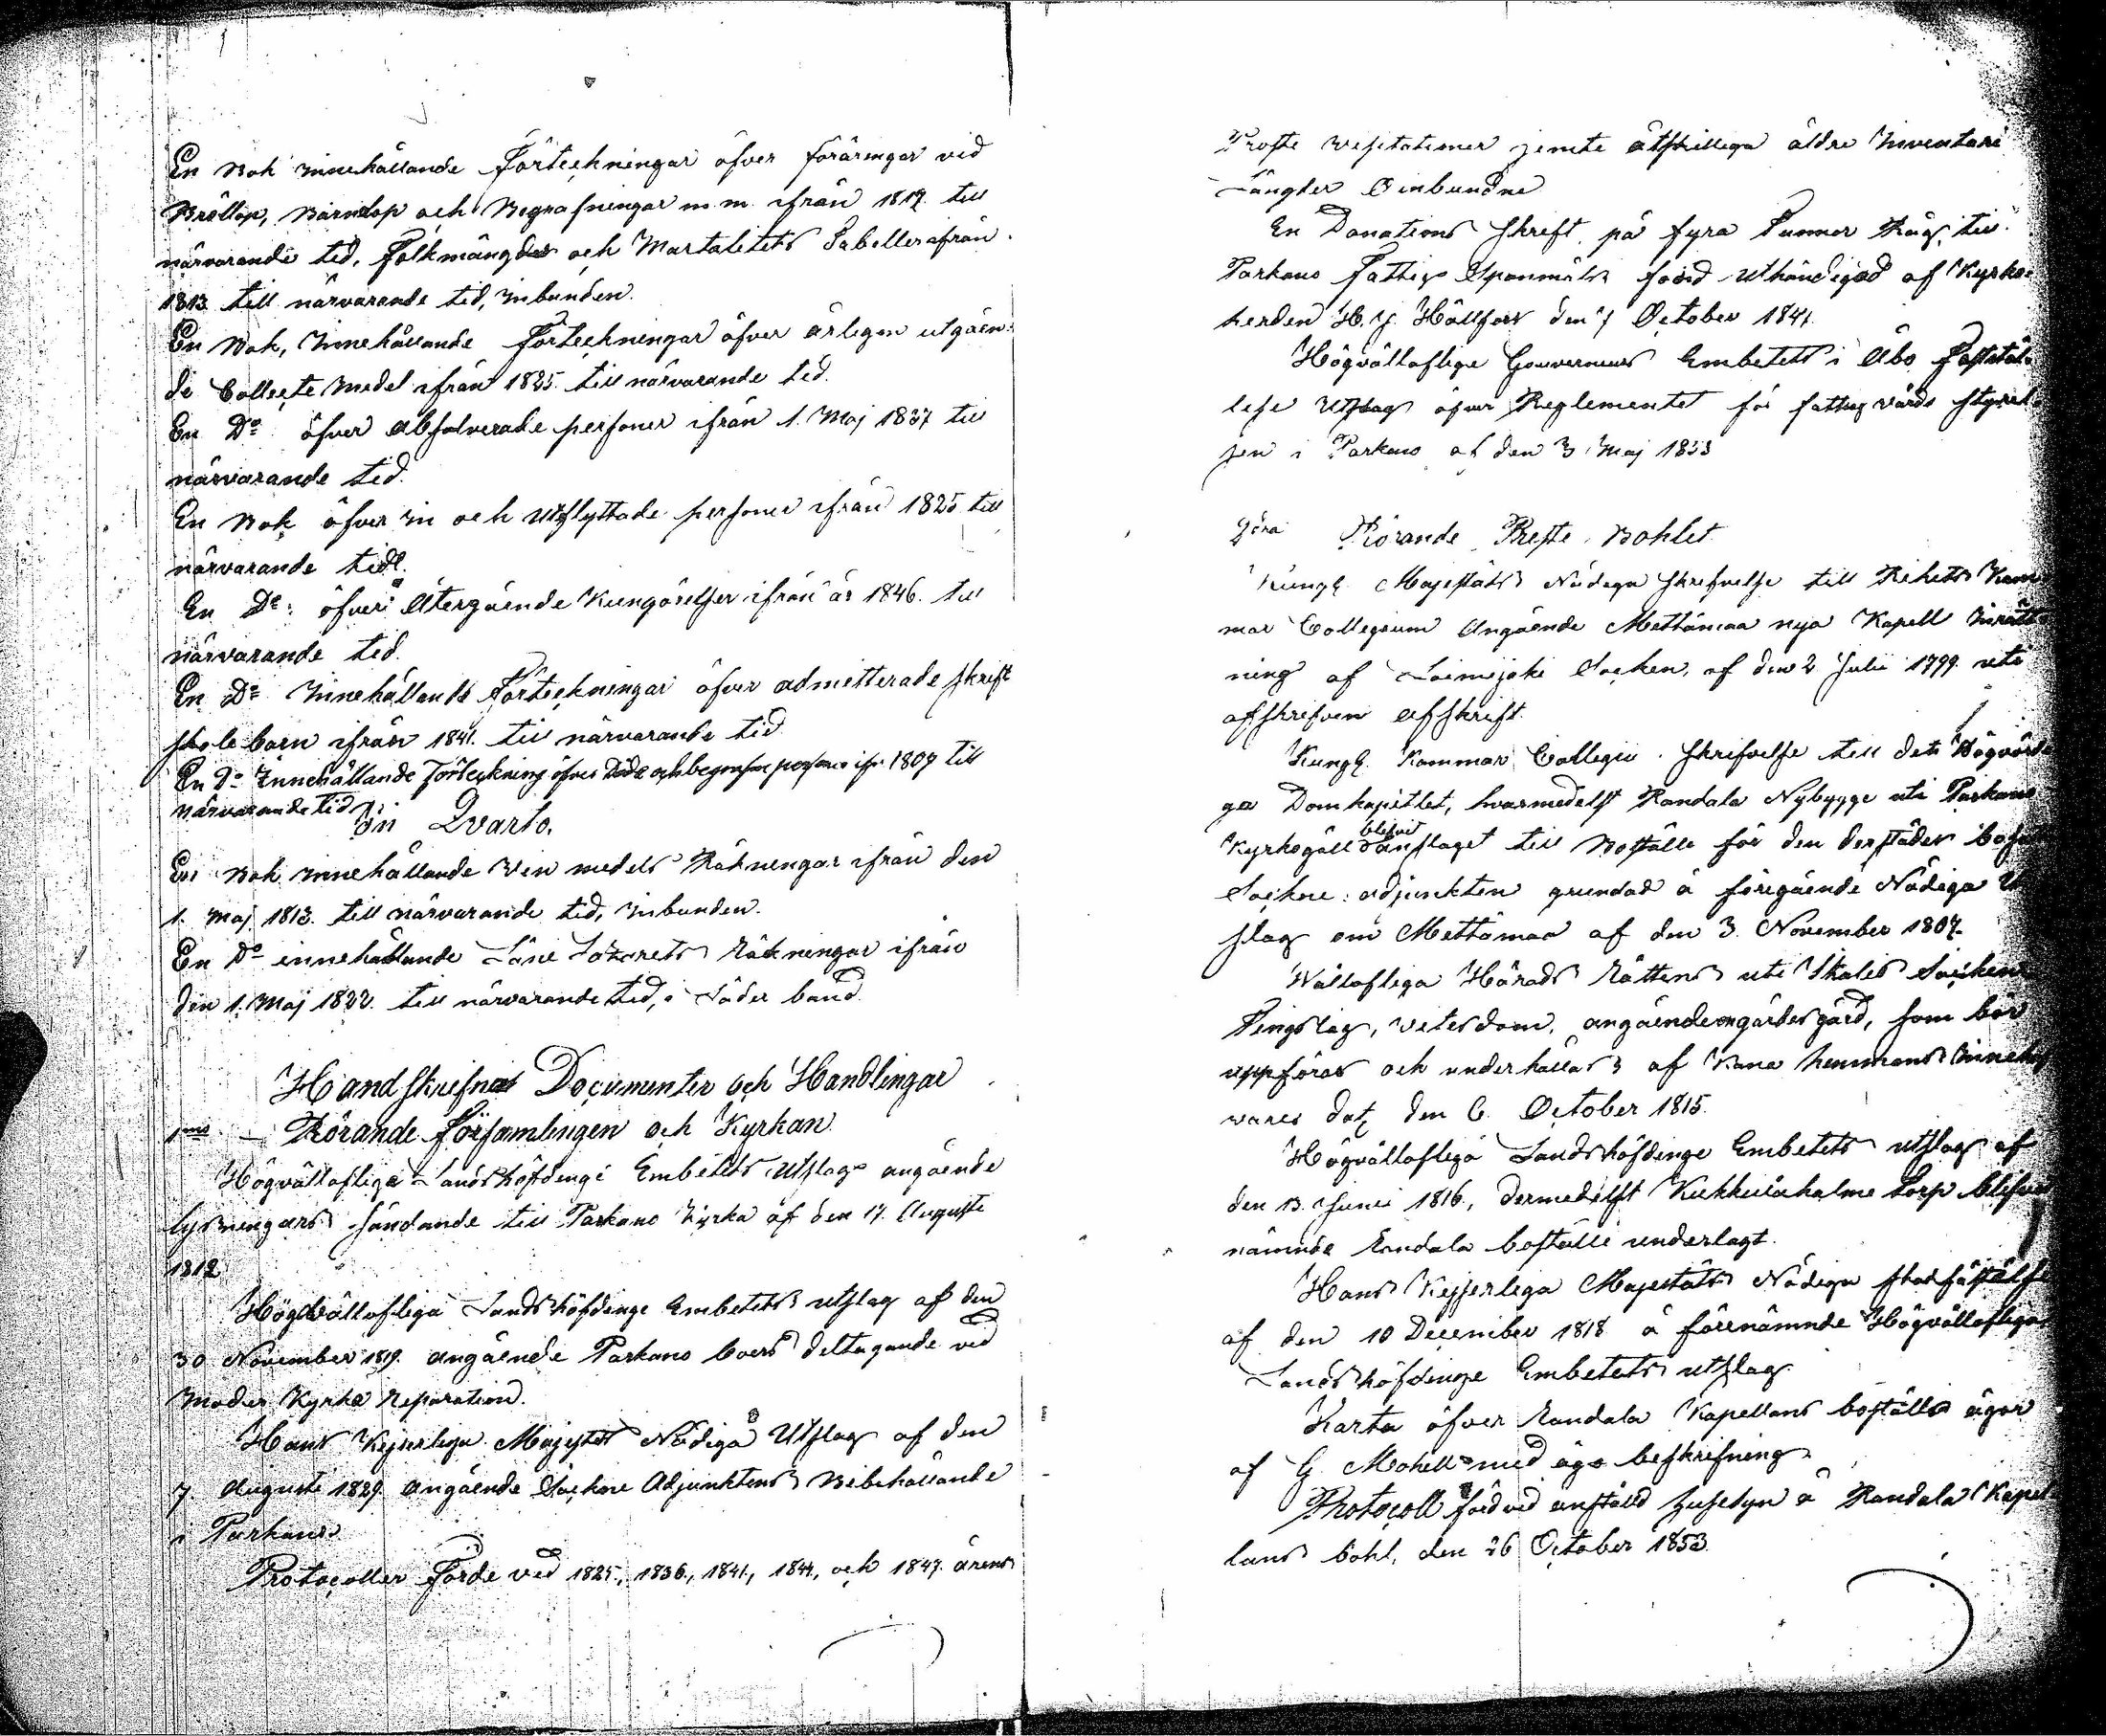 En Bok innehållande Förteckningar öfver föräringar vid
Bröllop, Barndop och Begrafningar m. m. ifrån 1819 till
närvarande tid, Folkmängdes och Mortalitets Tabeller ifrån
1813 till närvarande tid, inbunden.
En Bok, Innehållande Förteckningar öfver årligen utgåen-
de Collecte Medel ifrån 1825 till närvarande tid.
En Do öfver Absolverade personer ifrån 1. Maj 1837 till
närvarande tid.
En Bok öfver in och Utflyttade personer ifrån 1825 till
närvarande tid.
En Do: öfver Återgående Kungörelser ifrån år 1846. till
närvarande tid.
En Do Innehållande Förteckningar öfver admitterade skrift
skole barn ifrån 1841. till närvarande tid
En Do Innehållande Förteckning öfver Döde och begrafne personer ifr. 1807 till
närvarande tid
In Qvarto.
En Bok innehållande Vin medels Räkningar ifrån den
1. Maj 1813 till närvarande tid, inbunden.
En Do innehållande Läne Lazarets Räkningar ifrån
den 1. Maj 1822. till närvarande tid, i Läder band
Handskrefna Documenter och Handlingar
1mo Rörande Församlingen och Kyrkan
Högvällofliga Landshöfdinge Embetets Utslag angående
lysningars sändande till Parkano Kyrka af den 17. Augusti
1812
Högvällofliga Landshöfdinge Embetets utslag af den
30 November 1819. angående Parkano boers deltagande ved
Moder Kyrko Reparation.
Hans Kejserliga Majestäts Nådiga Utslag af den
7. Augusti 1829. angående Sockne Adjunktens Bibehållande
i Parkano
Protocoller Förde ved 1825, 1836, 1841, 1844, och 1847. årens
Proste Visitationer jemte åtskilliga äldre Inventarie
Längder Oinbundne
En Donations skrift på fyra Tunnor Råg till
Parkano Fattige Spanmåls fond uthändigad af Kyrko-
herden H. J. Hällfors den 7 October 1841.
Högvällofliga Gouverneurs Embetets i Åbo Faststäl-
lelse Utslag öfver Reglementet för fattigvårds styrel-
sen i Parkano af den 3 Maj 1853
2dra Rörande Preste Bohlet
Kungl. Majestäts Nådiga skrifvelse till Rikets Kam
mar Collegium Angående Mettämaa nya Kapell Inrätt
ning af Loimijoki Socken, af den 2 Julii 1799 uti
afskrifven Afskrift.
Kungl. Kammar Collegii skrifvelse till det Högvörd
ga Domkapitlet, hvarmedelst Randala Nybygge uti Parkano
Kyrkogäll blifvit anslaget till Boställe för den derstädes
Sockne adjunkten grundad å föregående Nådiga Ut
slag om Mettämaa af den 3. November 1807.
Wällofliga Härads Rättens uti Ikalis Socken
Tingslag, vitesdom, angående gärdesgård, som bör
uppföras och underhållas af hemmans Inneha
vares dat. den 6. October 1815.
Högvällofliga Landshöfdinge Embetets utslag af
den 13. Junii 1816, dermedelst Torp blifvit
nämnde Randala boställe underlagt.
Hans Kejserliga Majestäts Nådiga
af den 10 December 1818 å förenämnde Högvällofliga
Landshöfdinge Embetets utslag
Karta öfver Randala Kapellans boställes ägor
af G. Mohell med ägo beskrifning
Protocoll förd vid anställd husesyn å Randala Kapel
lans bohl, den 26 October 1853.